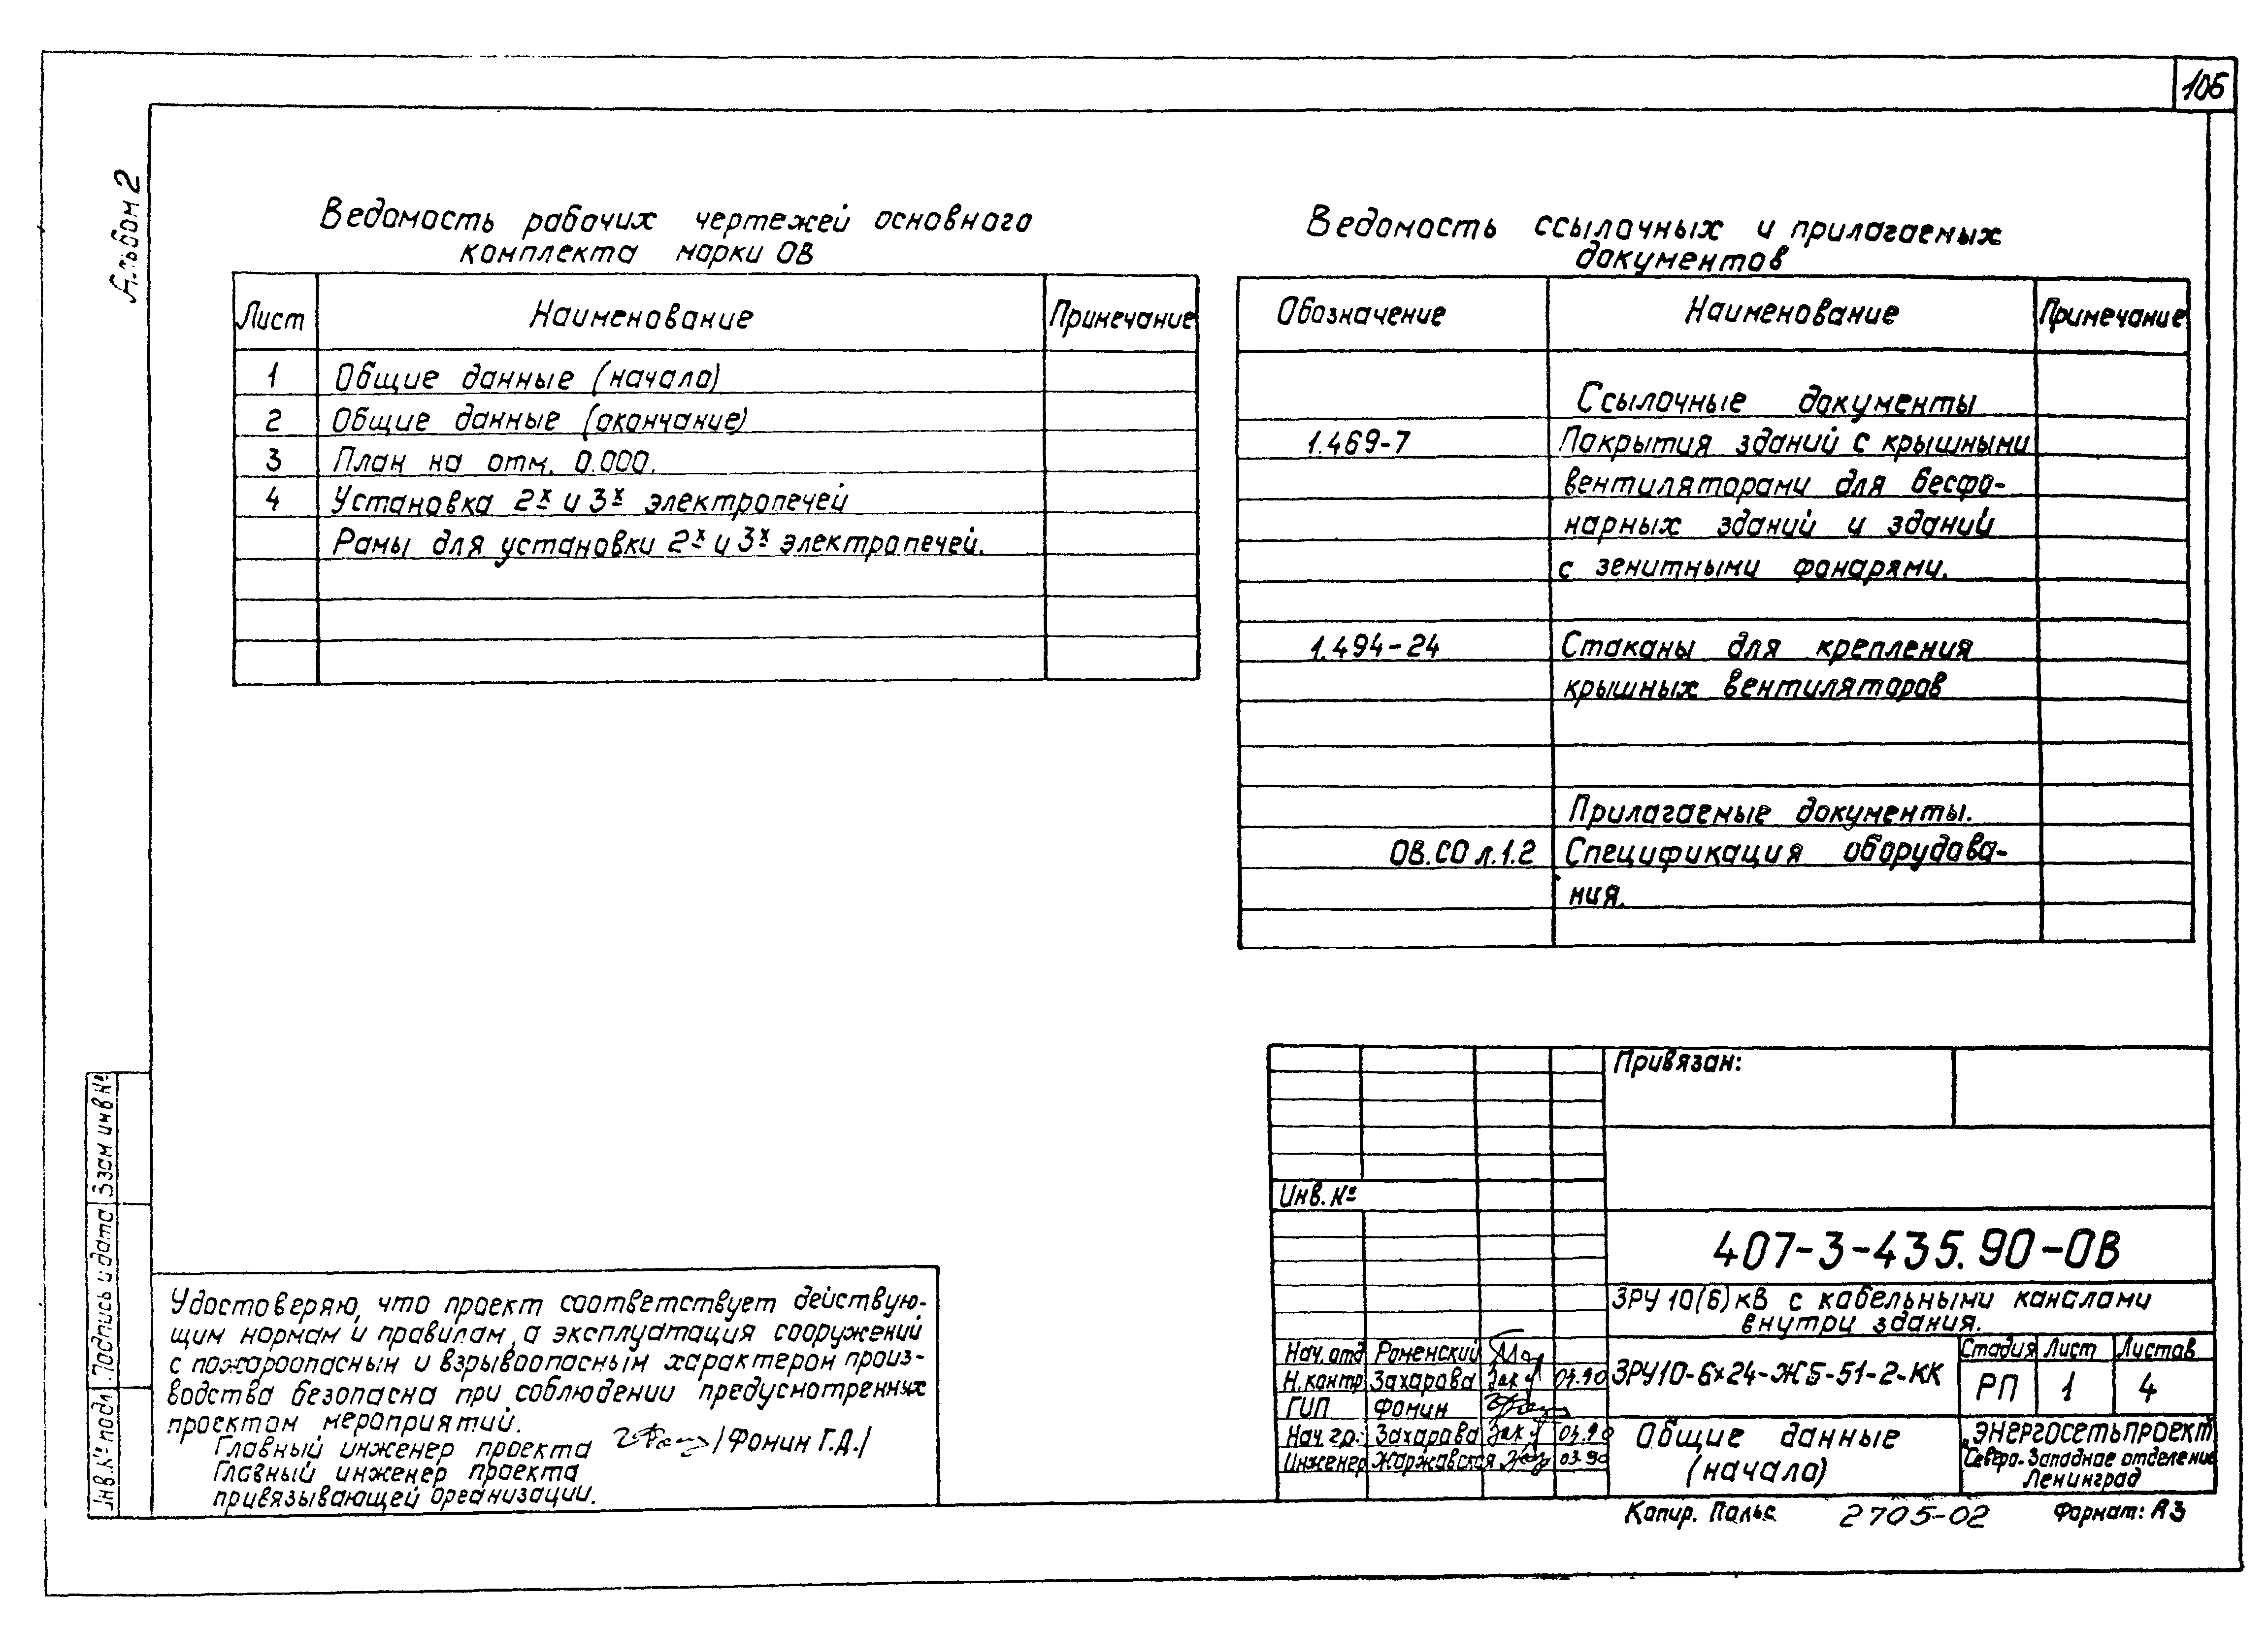 105
Альбом 2
Ведомость рабочих чертежей основного
комплекта марки ОВ
Лист Наименование Примечание
1 Общие данные (начало)
2 Общие данные (окончание)
3 План на отм. 0.000.
4 Установка 2х и 3х электропечей
Рамы для установки 2х и 3х электропечей.
Ведомость ссылочных и прилагаемых
документов
Обозначение Наименование Примечание
Ссылочные документы
1.469-7 Покрытия зданий с крышными
вентиляторами для бесфо-
нарных зданий и зданий
с зенитными фонарями.
1.494-24 Стаканы для крепления
крышных вентиляторов
Прилагаемые документы.
ОВ.СО л.1.2 Спецификация оборудова-
ния.
Удостоверяю, что проект соответствует действую-
щим нормам и правилам, а эксплуатация сооружений
с пожароопасным и взрывоопасным характером произ-
водства безопасна при соблюдении предусмотренных
проектом мероприятий.
Главный инженер проекта /Фомин Г.Д./
Главный инженер проекта
привязывающей организации.
Инв. № подл. Подпись и дата Взам инв №
Привязан:
Инв. №
407-3-435.90-ОВ
ЗРУ 10(6) кВ с кабельными каналами
внутри здания.
Нач. отд Роменский
Н. контр Захарова 03.90
ГИП Фомин
Нач. гр. Захарова 03.90
Инженер Жаржавская 03.90
ЗРУ10-6х24-ЖБ-51-2-КК
Стадия Лист Листов
РП 1 4
Общие данные
(начало)
„Энергосетьпроект"
Северо-Западное отделение
Ленинград
Копир. Пальс 2705-02 Формат: А3